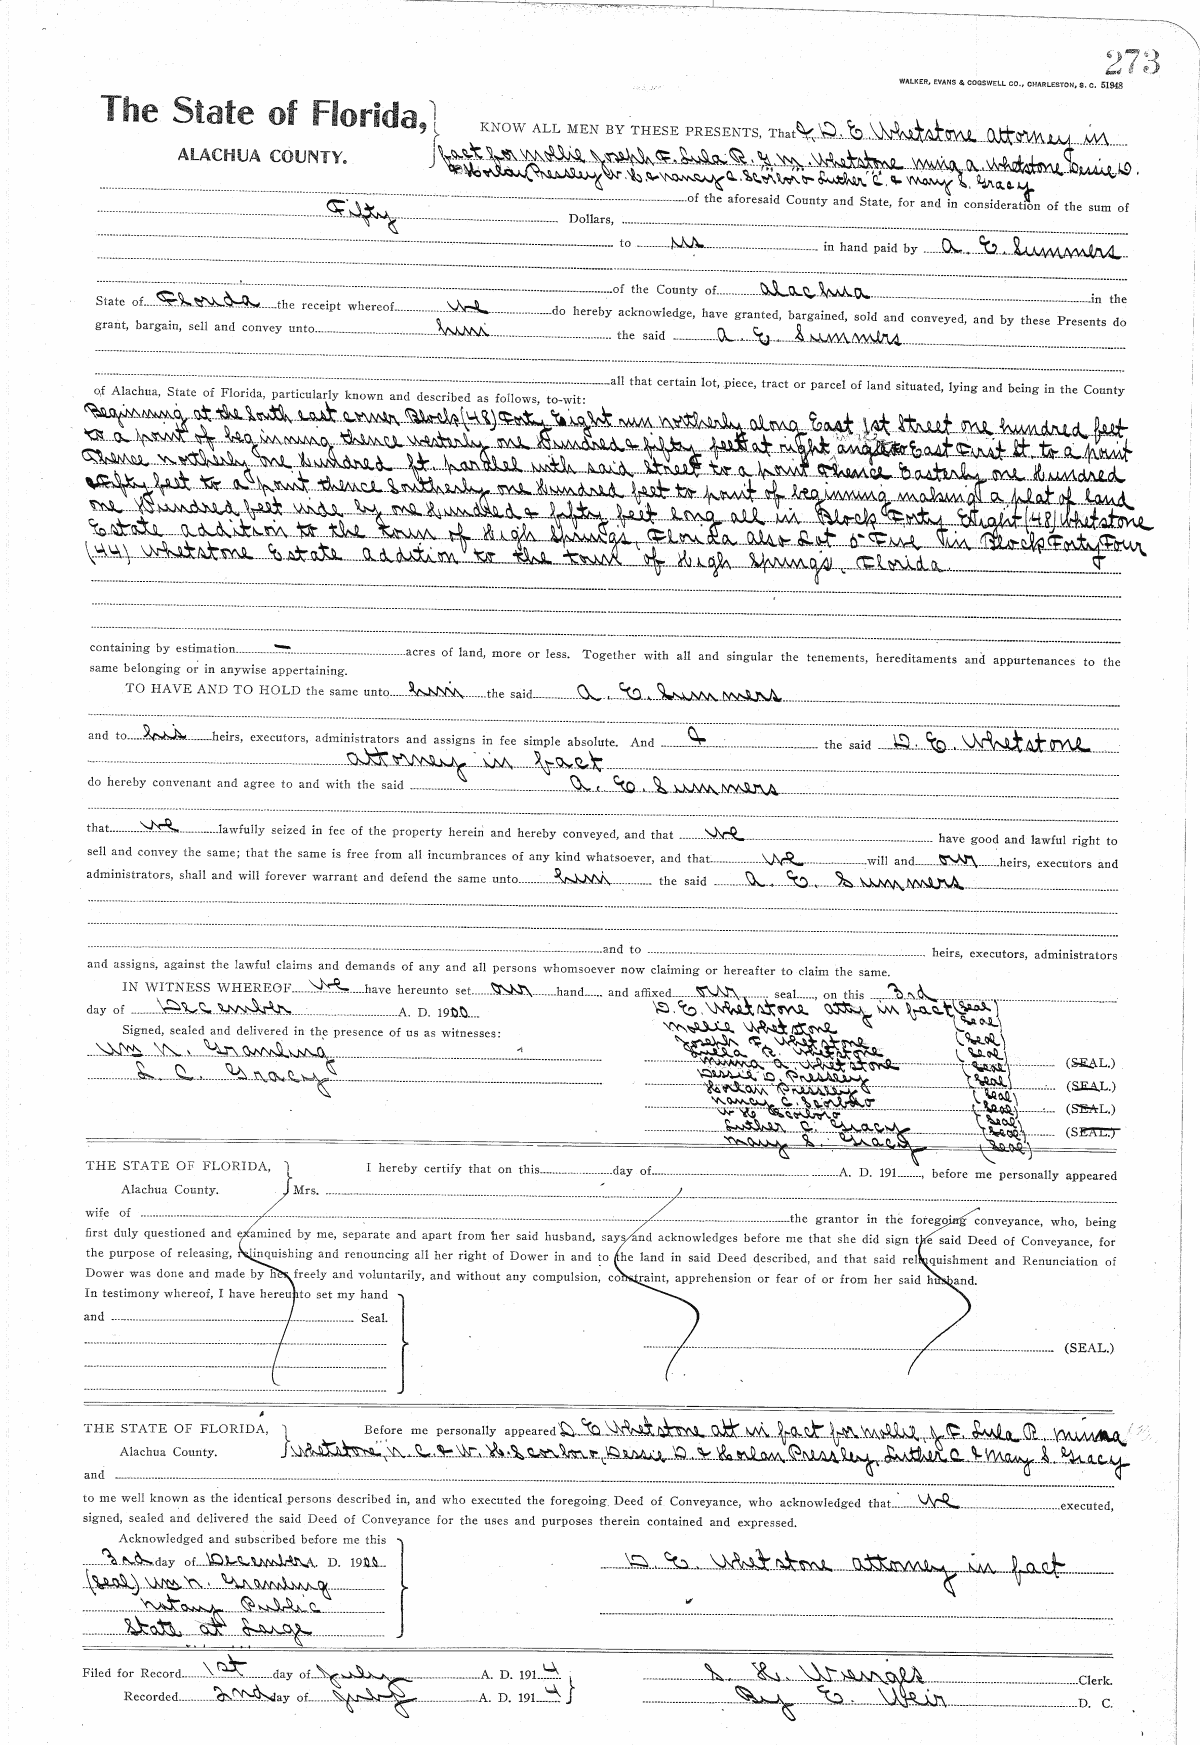 273
WALKER, EVANS & COGSWELL CO., CHARLESTON, S. C. 51948
The State of Florida,
ALACHUA COUNTY.
KNOW ALL MEN BY THESE PRESENTS, That I, D. E. Whetstone attorney in
fact for Mollie Joseph F. Lula R. G M. Whetstone Minia A. Whetstone Dessie D.
& Horlan Pressley W. H. & Nancy C. Scorboro Luther C. & Mary S. Gracy
of the aforesaid County and State, for and in consideration of the sum of
Fifty Dollars,
to us in hand paid by A. E. Summers
of the County of Alachua in the
State of Florida the receipt whereof we do hereby acknowledge, have granted, bargained, sold and conveyed, and by these Presents do
grant, bargain, sell and convey unto him the said A. E. Summers
all that certain lot, piece, tract or parcel of land situated, lying and being in the County
of Alachua, State of Florida, particularly known and described as follows, to-wit:
Beginning at the South east corner Block (48) Forty Eight run northerly along East 1st Street one hundred feet
to a point of beginning thence westerly one Hundred & fifty feet at right to East First St. to a point
Thence northerly one Hundred ft. parallel with said Street to a point Thence Easterly one Hundred
& Fifty feet to a point thence Southerly one Hundred feet to point of beginning making a plat of land
one Hundred feet wide by one Hundred & fifty feet long all in Block Forty Eight (48) Whetstone
Estate addition to the town of High Springs, Florida also Lot 5 Five in Block Forty Four
(44) Whetstone Estate addition to the town of High Springs, Florida.
containing by estimation — acres of land, more or less. Together with all and singular the tenements, hereditaments and appurtenances to the
same belonging or in anywise appertaining.
TO HAVE AND TO HOLD the same unto him the said A. E. Summers
and to his heirs, executors, administrators and assigns in fee simple absolute. And I the said D. E. Whetstone
attorney in fact
do hereby convenant and agree to and with the said A. E. Summers
that we lawfully seized in fee of the property herein and hereby conveyed, and that we have good and lawful right to
sell and convey the same; that the same is free from all incumbrances of any kind whatsoever, and that we will and our heirs, executors and
administrators, shall and will forever warrant and defend the same unto him the said A. E. Summers
and to heirs, executors, administrators
and assigns, against the lawful claims and demands of any and all persons whomsoever now claiming or hereafter to claim the same.
IN WITNESS WHEREOF we have hereunto set our hand and affixed our seal, on this 3rd
day of December A. D. 1900
Signed, sealed and delivered in the presence of us as witnesses:
Wm N. Gramling
L. C. Gracy
D. E. Whetstone atty in fact (Seal)
Mollie Whetstone (Seal)
Joseph F. Whetstone (Seal)
Luella R. Whetstone (Seal)
Minna A. Whetstone (Seal) (SEAL.)
Dessie D. Pressley (Seal)
Horlan Pressley (Seal) (SEAL.)
Nancy C. Scorboro (Seal)
W H Scorboro (Seal) (SEAL.)
Luther C. Gracy (Seal) (SEAL.)
Mary S. Gracy (Seal)
THE STATE OF FLORIDA,
Alachua County.
I hereby certify that on this day of A. D. 191 , before me personally appeared
Mrs.
wife of the grantor in the foregoing conveyance, who, being
first duly questioned and examined by me, separate and apart from her said husband, says and acknowledges before me that she did sign the said Deed of Conveyance, for
the purpose of releasing, relinquishing and renouncing all her right of Dower in and to the land in said Deed described, and that said relinquishment and Renunciation of
Dower was done and made by her freely and voluntarily, and without any compulsion, constraint, apprehension or fear of or from her said husband.
In testimony whereof, I have hereunto set my hand
and Seal.
(SEAL.)
THE STATE OF FLORIDA,
Alachua County.
Before me personally appeared D. E. Whetstone att in fact for Mollie, J. F. Lula R. Minna
Whetstone, N. C. & W. H. Scorboro, Dessie D. & Horlan Pressley, Luther C. & Mary S. Gracy
and
to me well known as the identical persons described in, and who executed the foregoing Deed of Conveyance, who acknowledged that we executed,
signed, sealed and delivered the said Deed of Conveyance for the uses and purposes therein contained and expressed.
Acknowledged and subscribed before me this
3rd day of December A. D. 1900
(Seal) Wm N. Gramling
Notary Public
State at Large
D. E. Whetstone attorney in fact
Filed for Record 1st day of July A. D. 1914
Recorded 2nd day of July A. D. 1914
S. H. Wienges Clerk.
By E. Weir D. C.